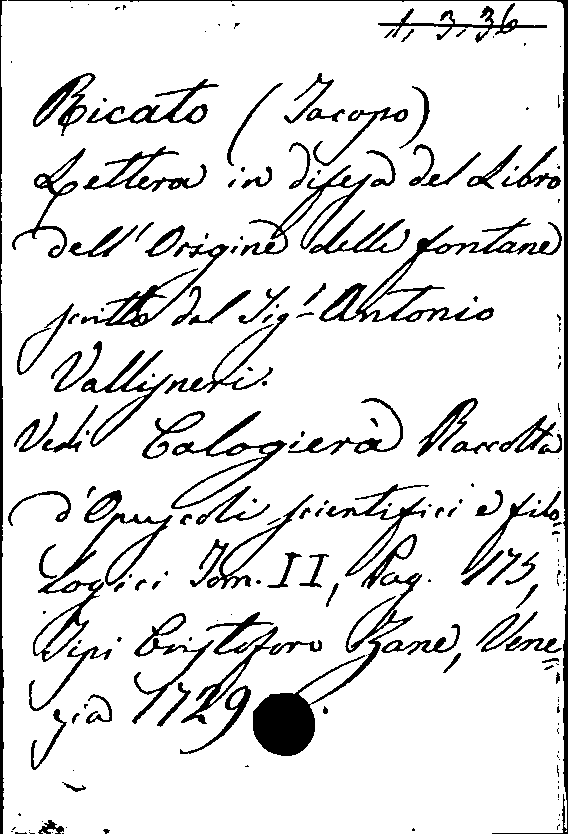 1, 3, 36
Ricato (Jacopo)
Lettera in difesa del Libro
dell' Origine delle fontane
scritto dal Sigr Antonio
Vallisneri.
Vedi Calogierà Raccolta
d'Opuscoli scientifici e filo
logici Tom. II, Pag. 175,
Tipi Cristoforo Zane, Vene
zia 1729.